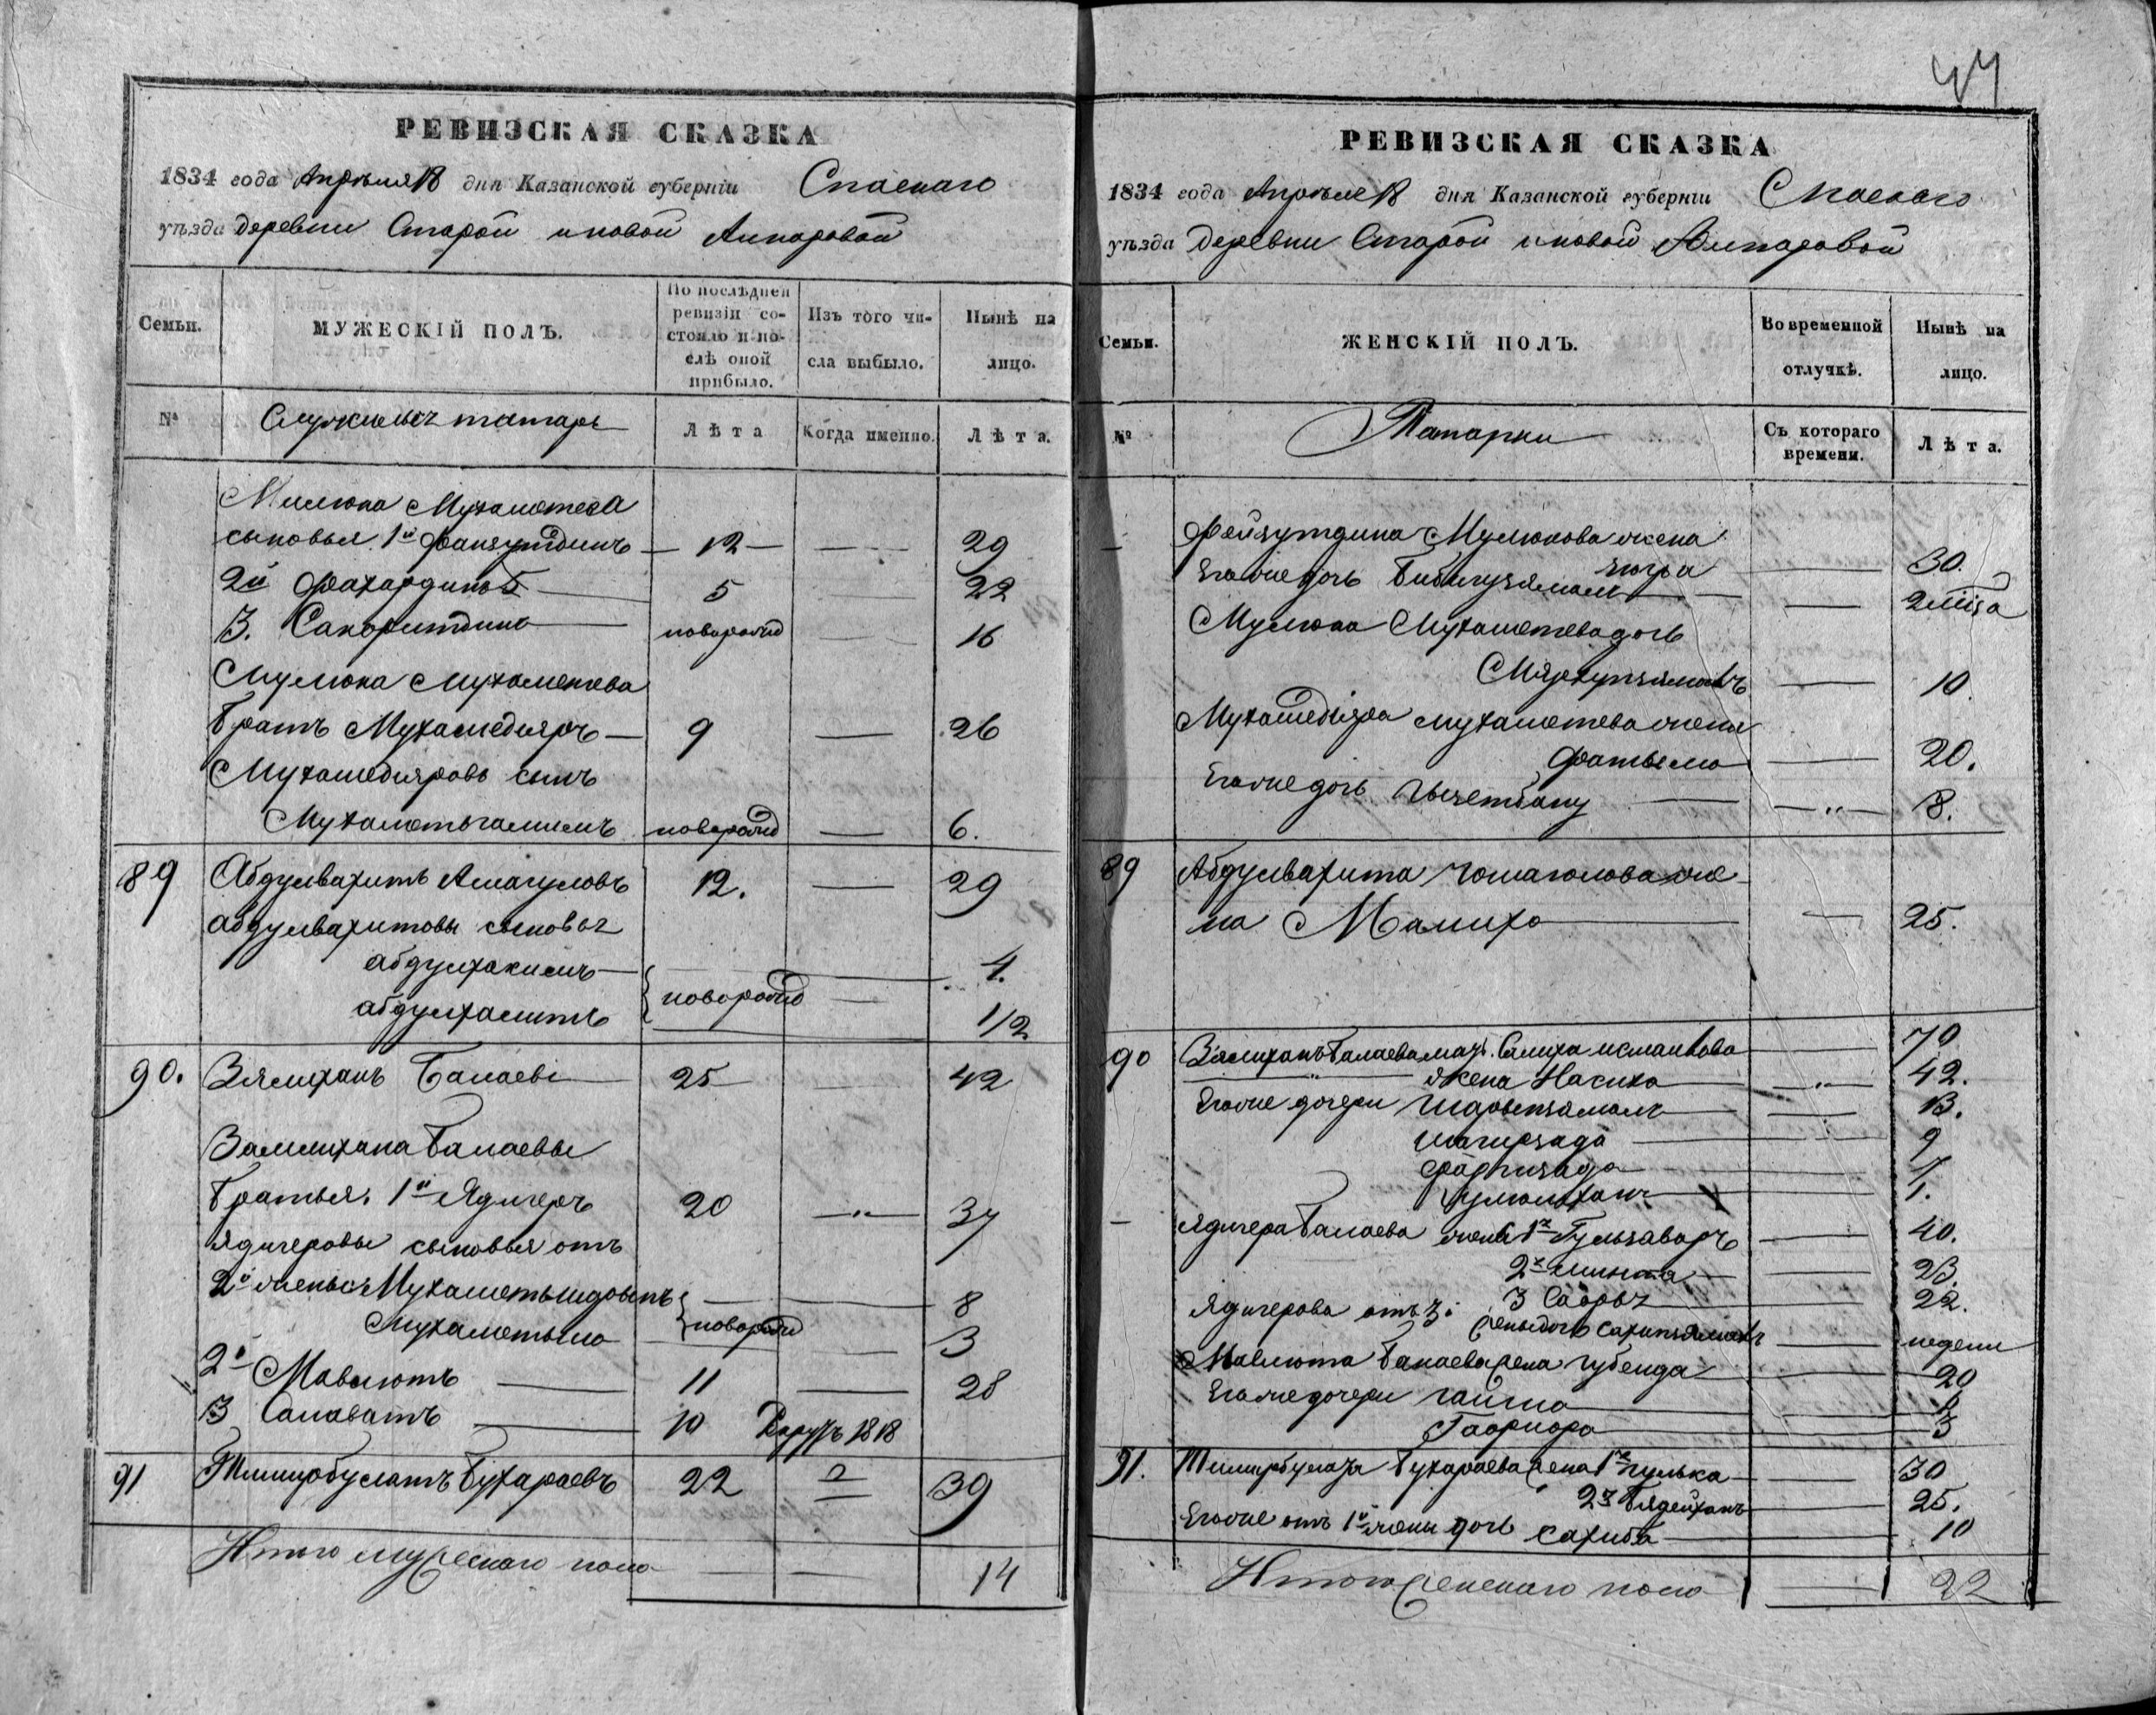 44
РЕВИЗСКАЯ СКАЗКА
1834 года Апреля 18 дня Казанской губерніи Спаскаго
уѣзда деревни Старой и новой Алпаровой
Семьи.
МУЖЕСКІЙ ПОЛЪ.
По послѣдней ревизіи состояло и послѣ оной прибыло.
Изъ того числа выбыло.
Нынѣ на лицо.
№
Служилыхъ татаръ
Лѣта
Когда именно.
Лѣта.
Милюка Мухаметева
сыновья 1й Фаизутдинъ — 12 — 29
2й Фахардинъ 5 22
3. новорожд 16
Мулюка Мухаметева
братъ Мухамедияръ — 9 — 26
Мухамедияровъ сынъ
Мухаметьгалимъ новорожд — 6.
89 Абдулвахитъ Амагуловъ 12. — 29
абдулвахитовы сыновья
абдулхакимъ — 4.
абдулхалитъ новорожд — 1/2
90. Зялиханъ Балаевъ 25 — 42
Залилихана Балаевы
братья. 1й Ядигеръ 20 — 37
Ядигеровы сыновья отъ
2й жены Мухаметьшдовъ — 8
новорожд — 3
2й Мавлютъ — 11 — 28
3 Салаватъ — 10 1818
91 Тимирбулатъ Бухараевъ 22 — 39
Итого мужескаго пола — 14
РЕВИЗСКАЯ СКАЗКА
1834 года Апреля 18 дня Казанской губерніи Спаскаго
уѣзда деревни Старой и новой Алпаровой
Семьи.
ЖЕНСКІЙ ПОЛЪ.
Во временной отлучкѣ.
Нынѣ на лицо.
№
Татарки
Съ котораго времени.
Лѣта.
— Фейзутдина Мулюкова жена
Зюгра — 30.
Егоже дочь Бибигузямалъ —
Мулюка Мухаметева дочь
Мярхупзямалъ — 10.
Мухамедіяра мухаметева жена
Фатыма — 20.
Егоже дочь — 8.
89 Абдулвахита же-
на Малиха — 25.
90 Зялиханъ Балаева мать. Салиха — 70
жена Насиха — 42.
Егоже дочери — 13.
шагирзада — 9
фархизада — 7
1.
— Ядигера Балаева жена 1я Гульзаваръ — 40.
2я — 23.
3 — 22.
Ядигерова отъ 3й жены дочь — недели
Мавлюта Балаева жена Губейда — 20
Егоже дочери гайша
3
91. Тимирбулата Бухараева жена 1я — 30
2я Бядейханъ — 25.
Егоже отъ 1й жены дочь Сахиба — 10
Итого женскаго пола — 22